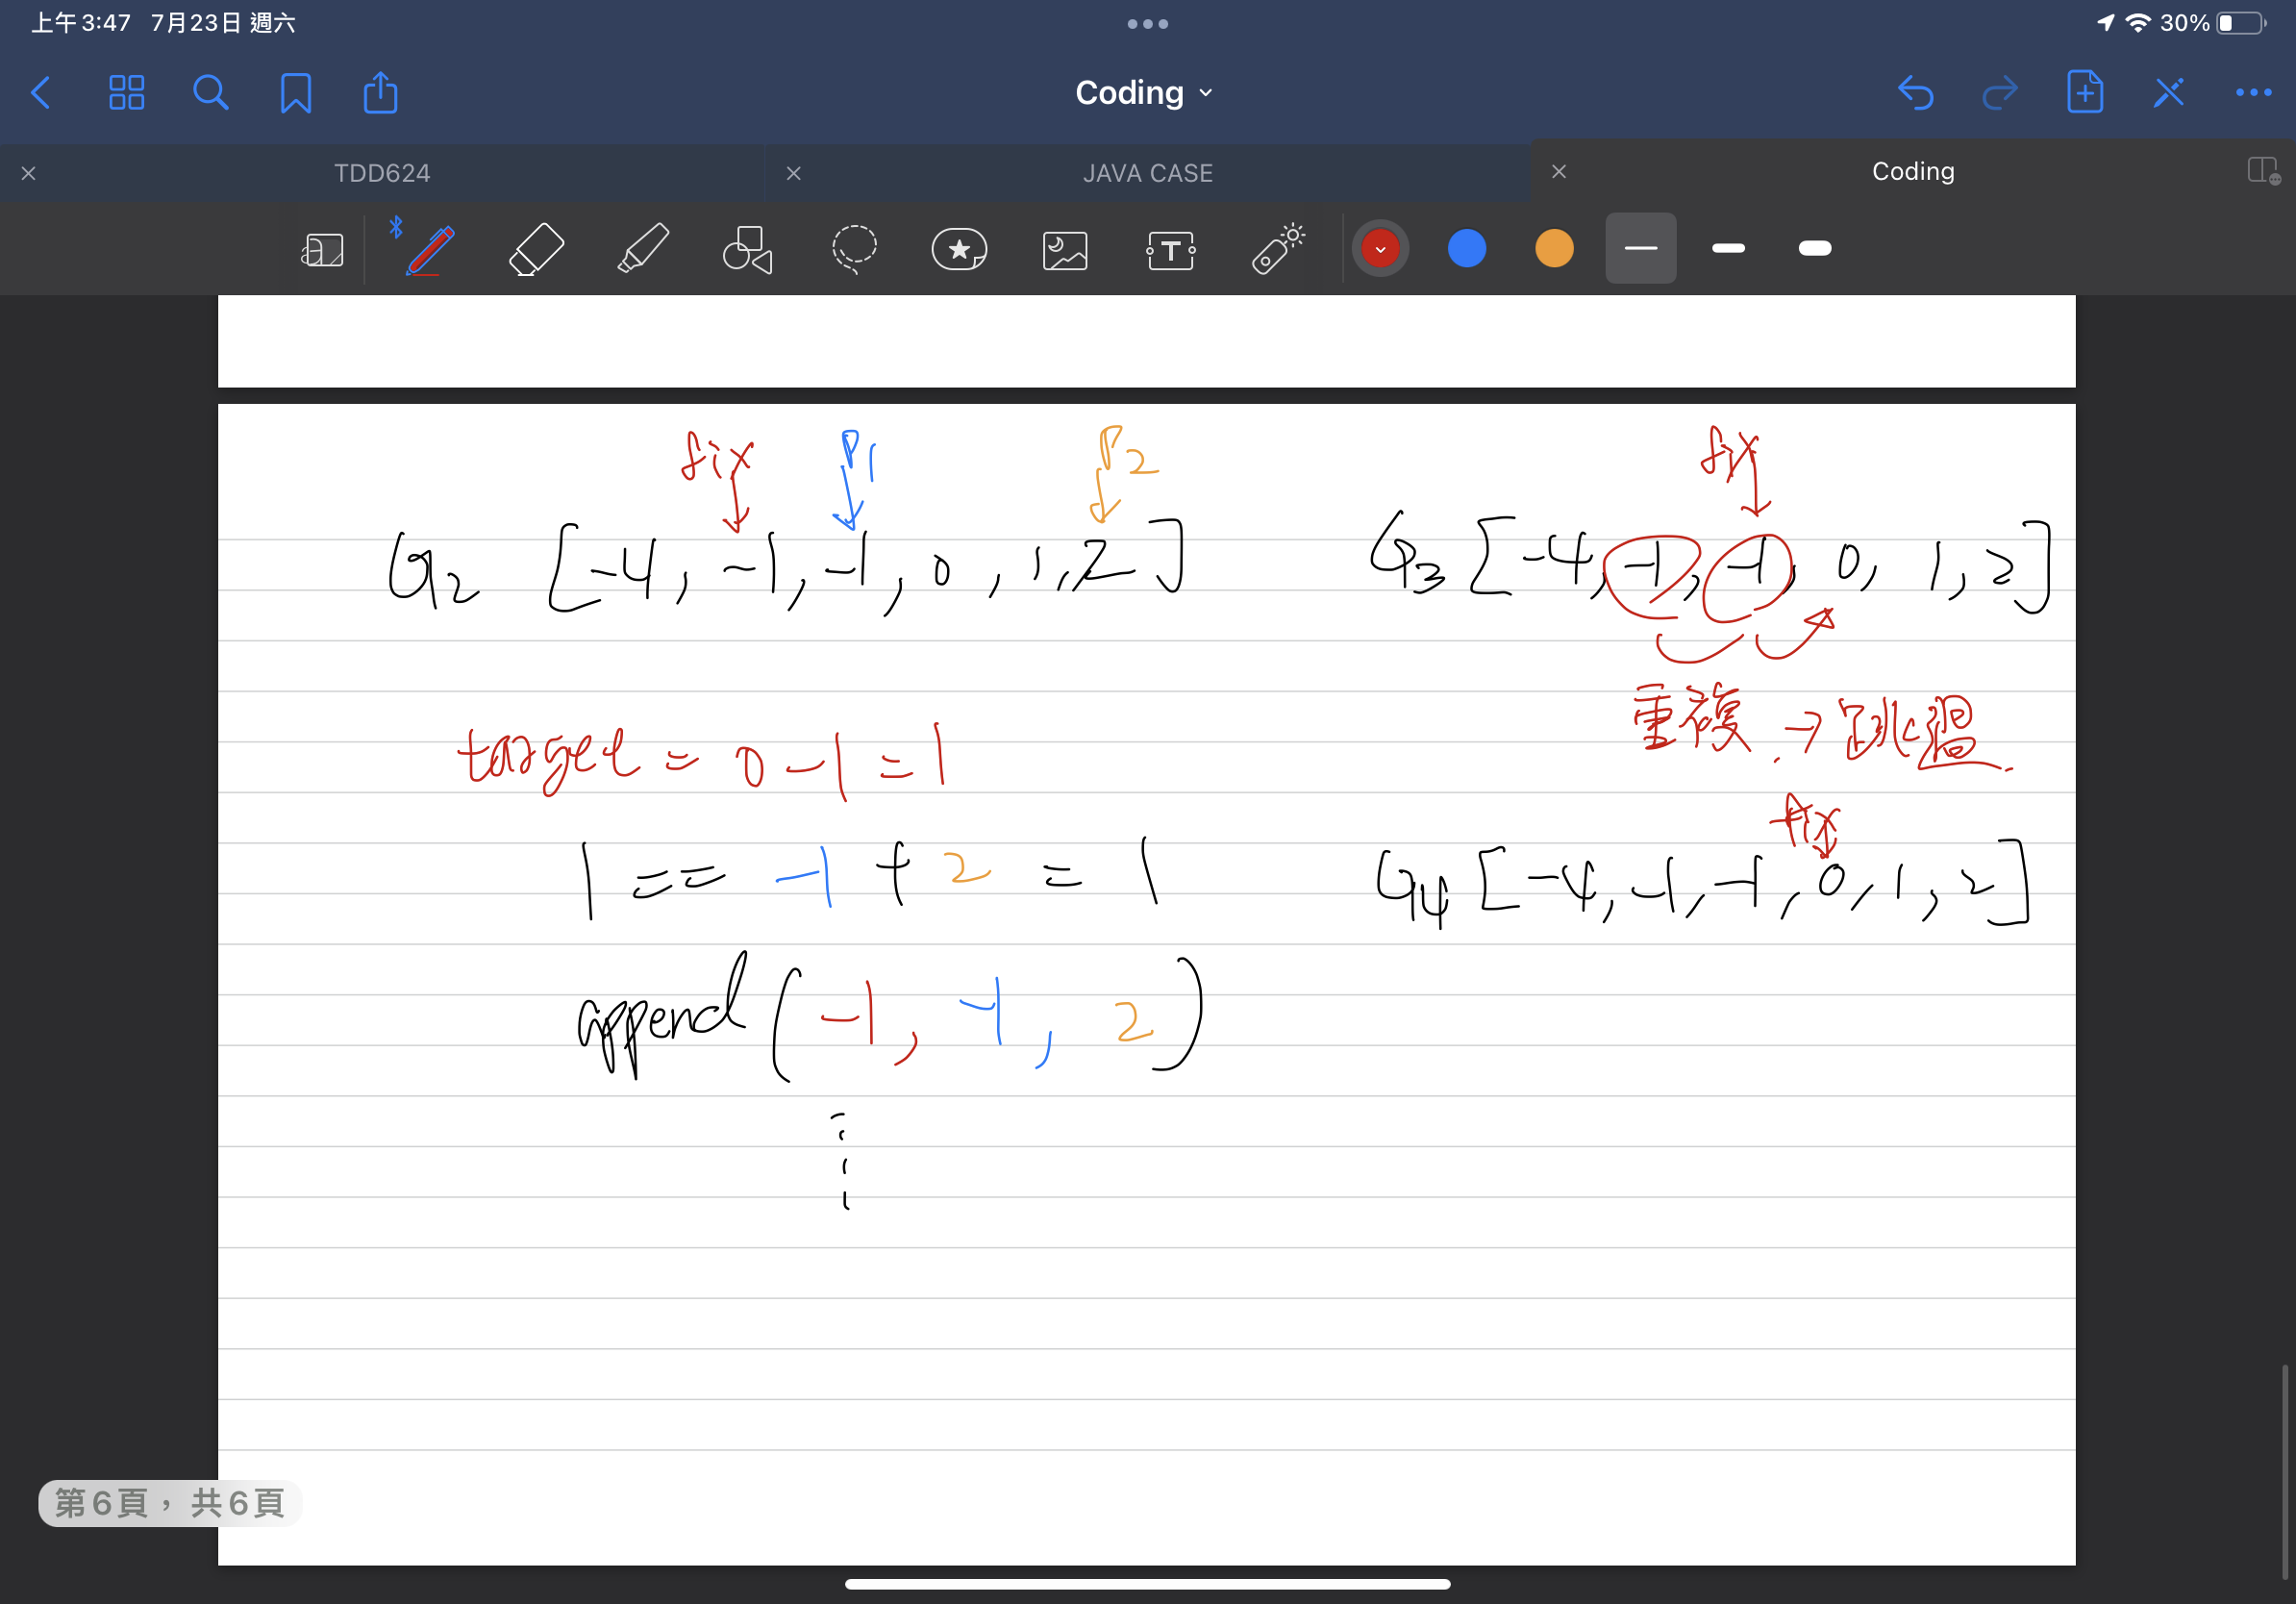 上午3:47 7月23日 週六
30%
Coding
TDD624
JAVA CASE
Coding
fix P1 P2
[-4, -1, -1, 0, 1, 2]
target = 0 - 1 = 1
1 == -1 + 2 = 1
append(-1, -1, 2)
fix
[-4, -1, -1, 0, 1, 2]
重複 → 跳過
fix
[-4, -1, -1, 0, 1, 2]
第6頁，共6頁